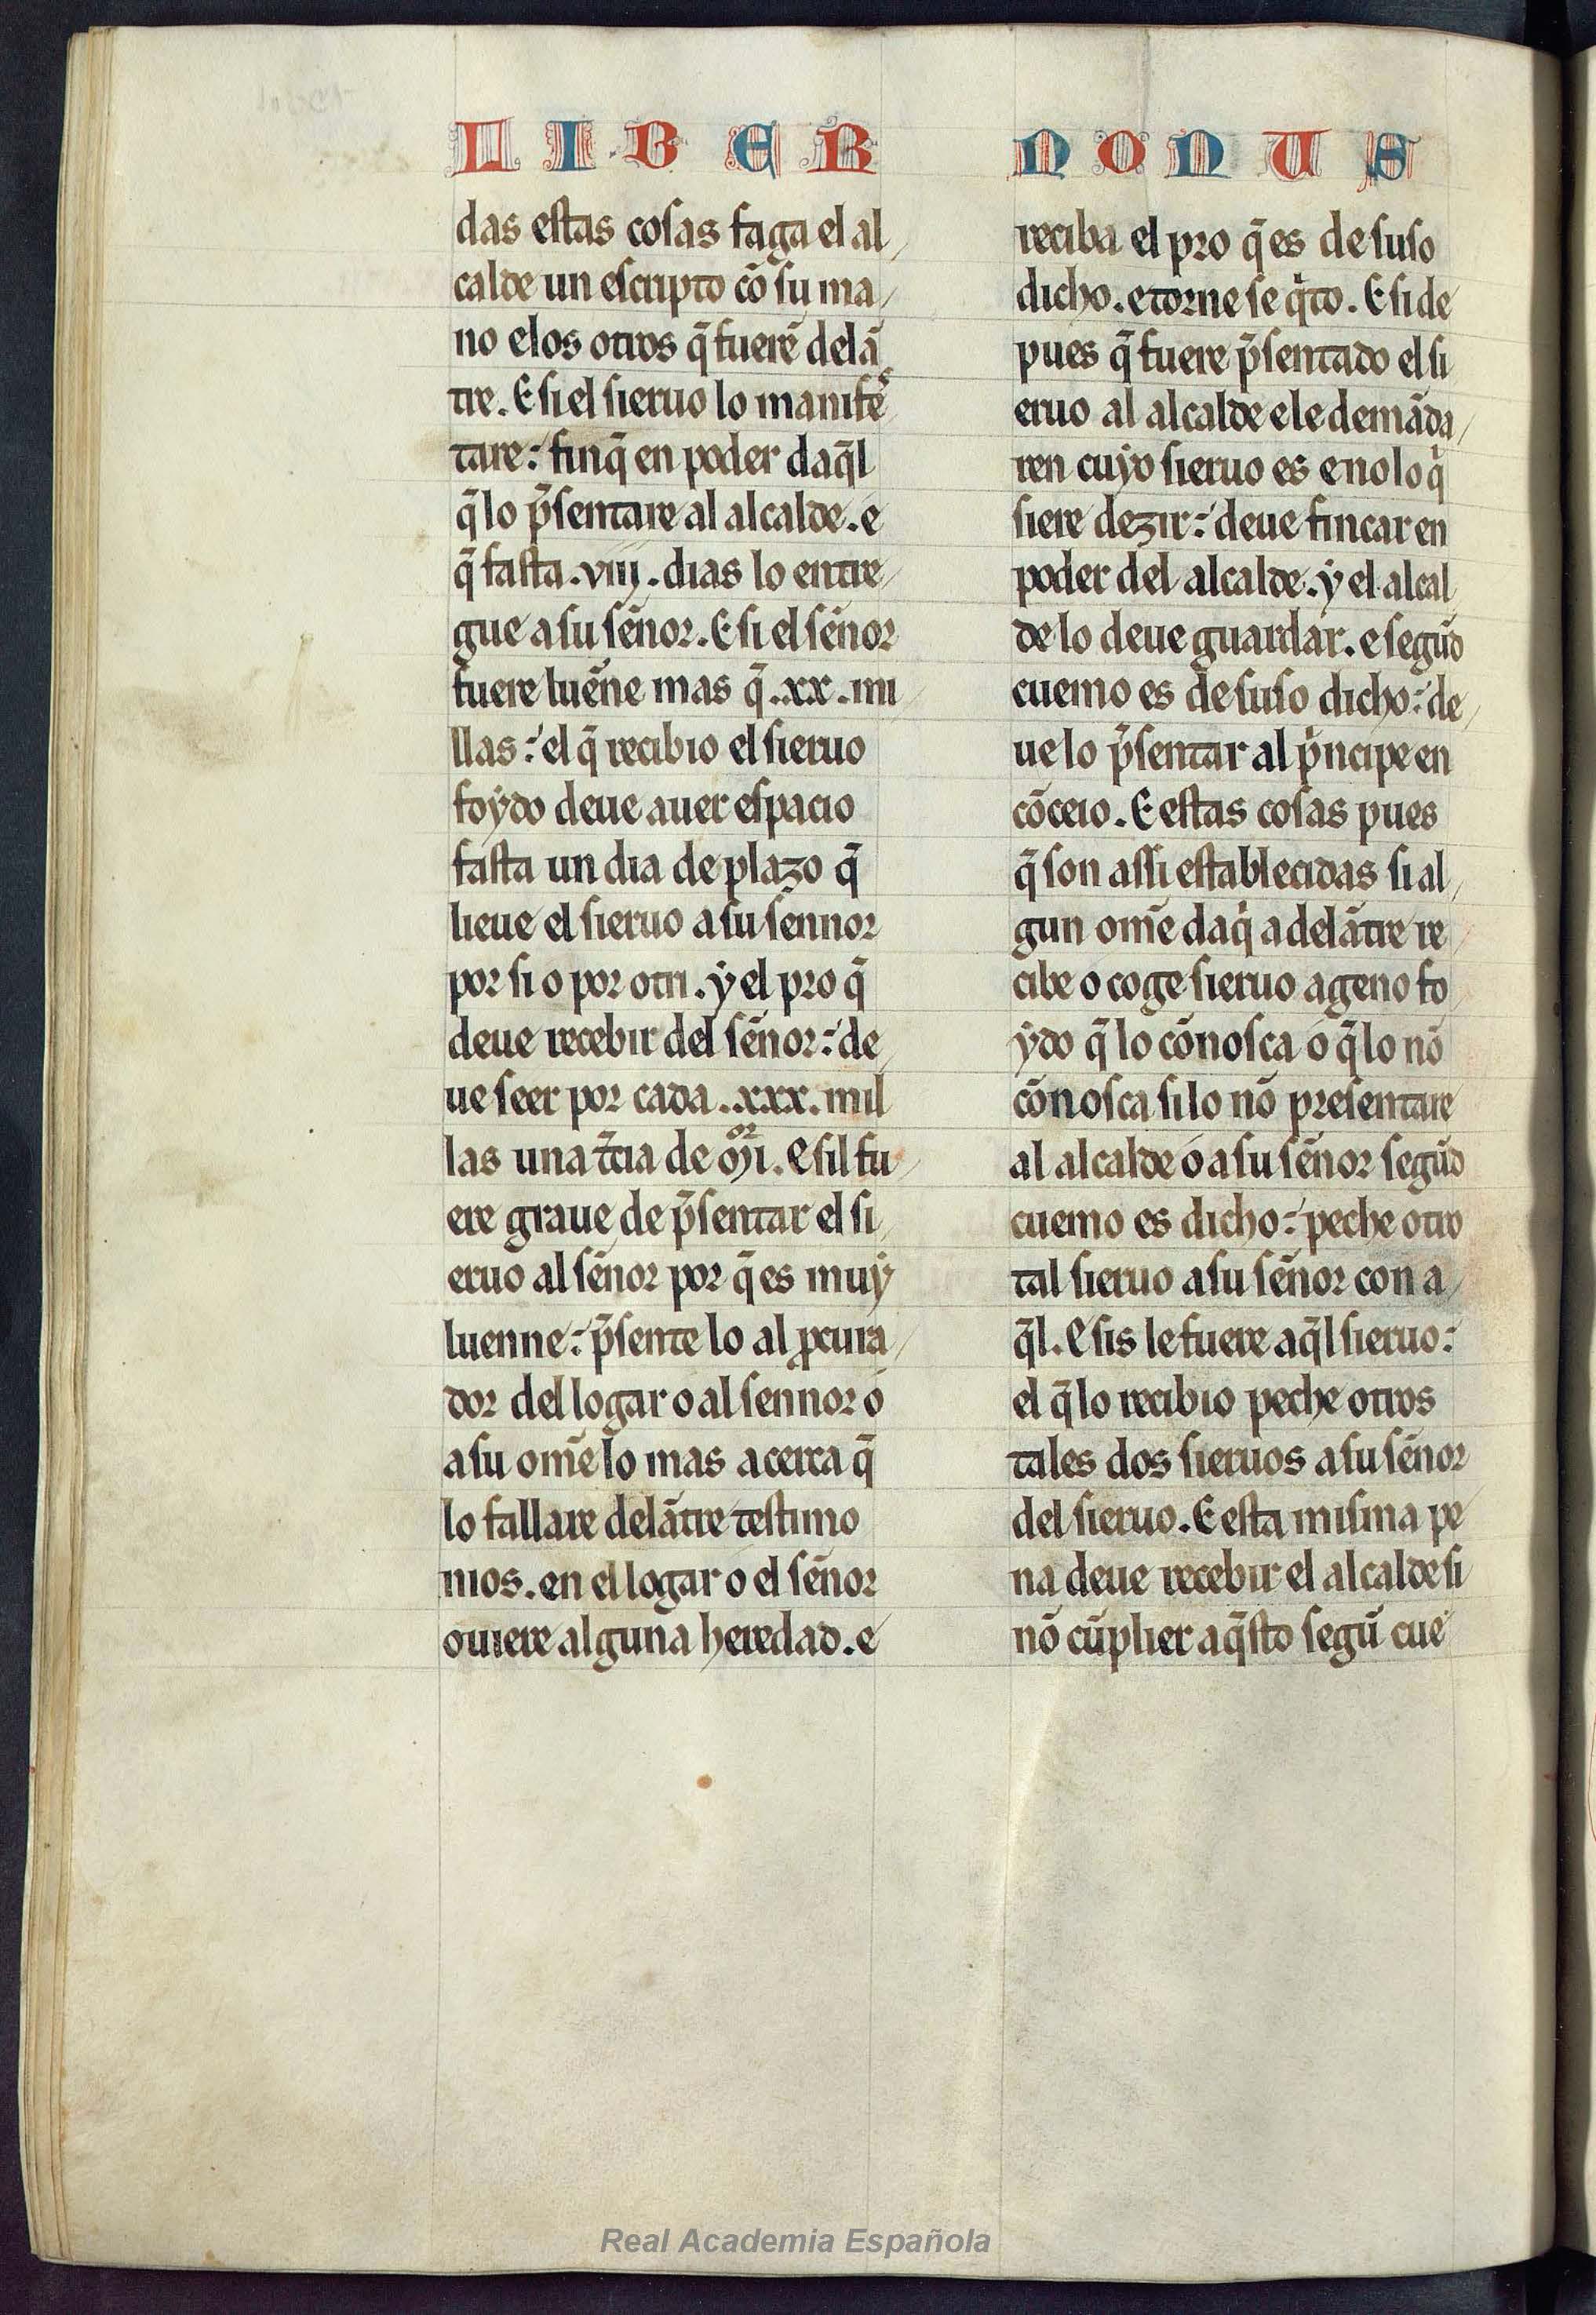 LIBER NONUS
das estas cosas faga el al/
calde un escripto cõ su ma/
no e los otros q̃ fuerẽ delã
tre. E si el sieruo lo manifẽˢ
tare: finq̃ en poder daq̃l
q̃ lo p̃sentare al alcalde. e
q̃ fasta .viij. dias lo entre/
gue a su sẽnor. E si el sẽnor
fuere luẽne mas q̃ .xx. mi/
llas: el q̃ recibio el sieruo
foẏdo deue auer espacio
fasta un dia de plazo q̃
lieue el sieruo a su sennor
por si o por otri. ẏ el pro q̃
deue recebir del sẽnor: de/
ue seer por cada .xxx. mil
las una t̃cia de mor̃i. E sil fu/
ere graue de p̃sentar el si/
eruo al sẽnor por q̃ es muẏ
luenne: p̃sente lo al ꝓcura/
dor del logar o al sennor o
a su om̃e lo mas acerca q̃
lo fallare delãtre testimo
nios. en el logar o el sẽnor
ouiere alguna heredad. e
reciba el pro q̃ es de suso
dicho. e torne se qͥto. E si de
pues q̃ fuere p̃sentado el si
eruo al alcalde e le demãda/
ren cuẏo sieruo es e no lo qͥ
siere dezir: deue fincar en
poder del alcalde. ẏ el alcal/
de lo deue guardar. e segũd
cuemo es de suso dicho: de/
ue lo p̃sentar al pͥncipe en
cõceio. E estas cosas pues
q̃ son assi establecidas si al/
gun om̃e daqͥ adelãtre re/
cibe o coge sieruo ageno fo/
ẏdo q̃ lo cõnosca o q̃ lo nõ
cõnosca si lo nõ presentare
al alcalde o a su sẽnor segũd
cuemo es dicho: peche otro
tal sieruo a su sẽnor con a/
q̃l. E sis le fuere aq̃l sieruo:
el q̃ lo recibio peche otros
tales dos sieruos a su sẽnor
del sieruo. E esta misma pe/
na deue recebir el alcalde si/
nõ cũplier aq̃sto segũ cue
Real Academia Española